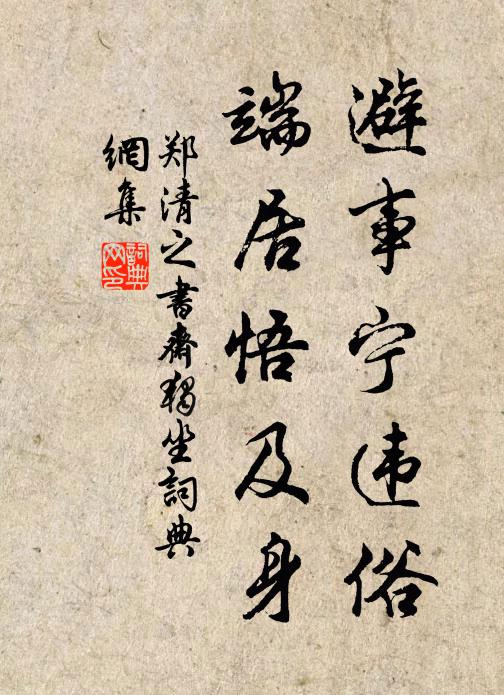 避事宁违俗
端居悟及身
郑清之书斋独坐词典
網集
詞典网印